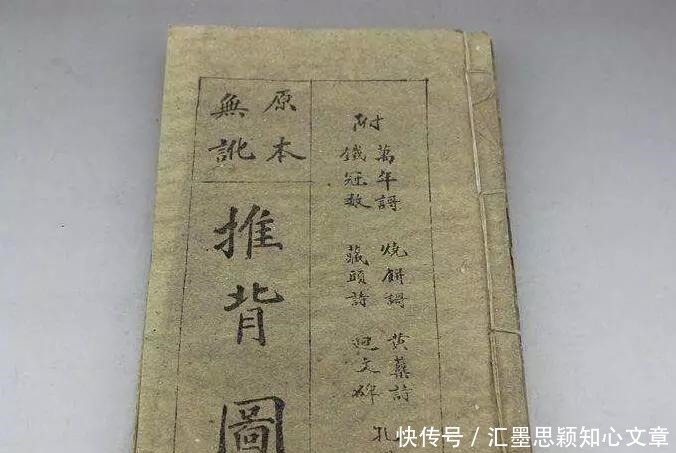 附
萬年謌 燒餅謌 黃蘗詩 孔
鐵冠数 藏頭詩 迴文碑
原本
無訛
推背圖
快传号／汇墨思颖知心文章